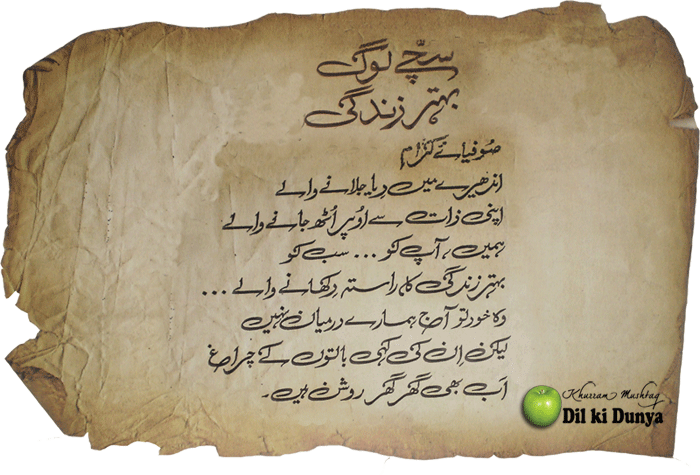 سچّے لوگ
بہتر زندگی
صُوفیائے کرام
اندھیرے میں دِیا جلانے والے
اپنی ذات سے اُوپر اُٹھ جانے والے
ہمیں، آپ کو ... سب کو
بہتر زندگی کا راستہ دِکھانے والے ...
وہ خود تو آج ہمارے درمیان نہیں
لیکن اِن کی کہی باتوں کے چراغ
اَب بھی گھر گھر روشن ہیں۔
Khurram Mushtaq
Dil ki Dunya